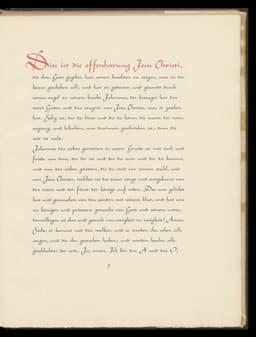 Dies ist die offenbarung Jesu Christi,
die ihm Gott gegeben hat, seinen knechten zu zeigen, was in der
kürze geschehen soll; und hat sie gedeutet, und gesandt durch
seinen engel zu seinem knecht Johannes, der bezeuget hat das
wort Gottes und das zeugnis von Jesu Christo, was er gesehen
hat. Selig ist, der da liest und die da hören die worte der weis-
sagung, und behalten, was darinnen geschrieben ist; denn die
zeit ist nahe.
Johannes den sieben gemeinen in asien: Gnade sei mit euch und
friede von dem, der da ist und der da war und der da kommt,
und von den sieben geistern, die da sind vor seinem stuhl, und
von Jesu Christo, welcher ist der treue zeuge und erstgeborne von
den toten und der fürst der könige auf erden. Der uns geliebt
hat und gewaschen von den sünden mit seinem blut, und hat uns
zu königen und priestern gemacht vor Gott und seinem vater,
demselbigen sei ehre und gewalt von ewigkeit zu ewigkeit! Amen.
Siehe, er kommt mit den wolken, und es werden ihn sehen alle
augen, und die ihn gestochen haben; und werden heulen alle
geschlechter der erde. Ja, amen. Ich bin das A und das O,